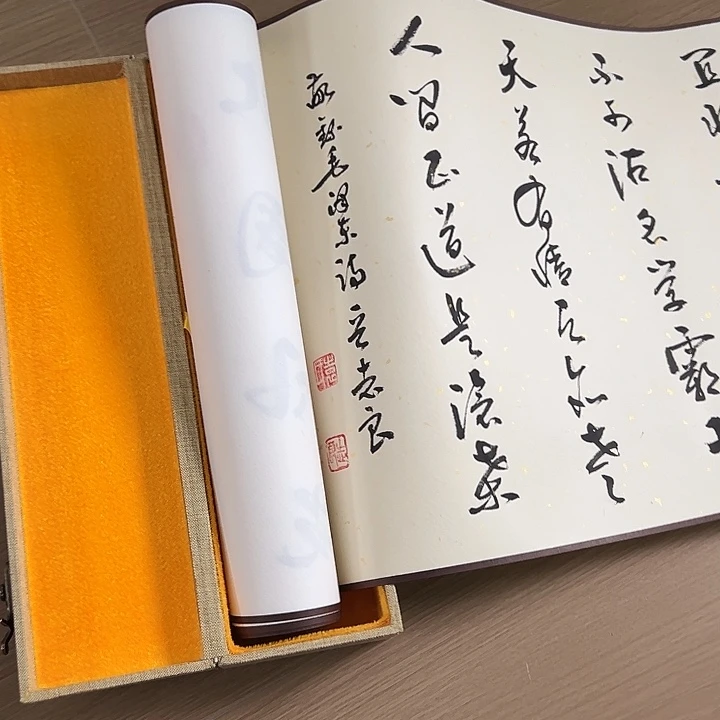 宜将
不可沽名学霸王
天若有情天亦老
人间正道是沧桑
敬録毛泽东诗 志良